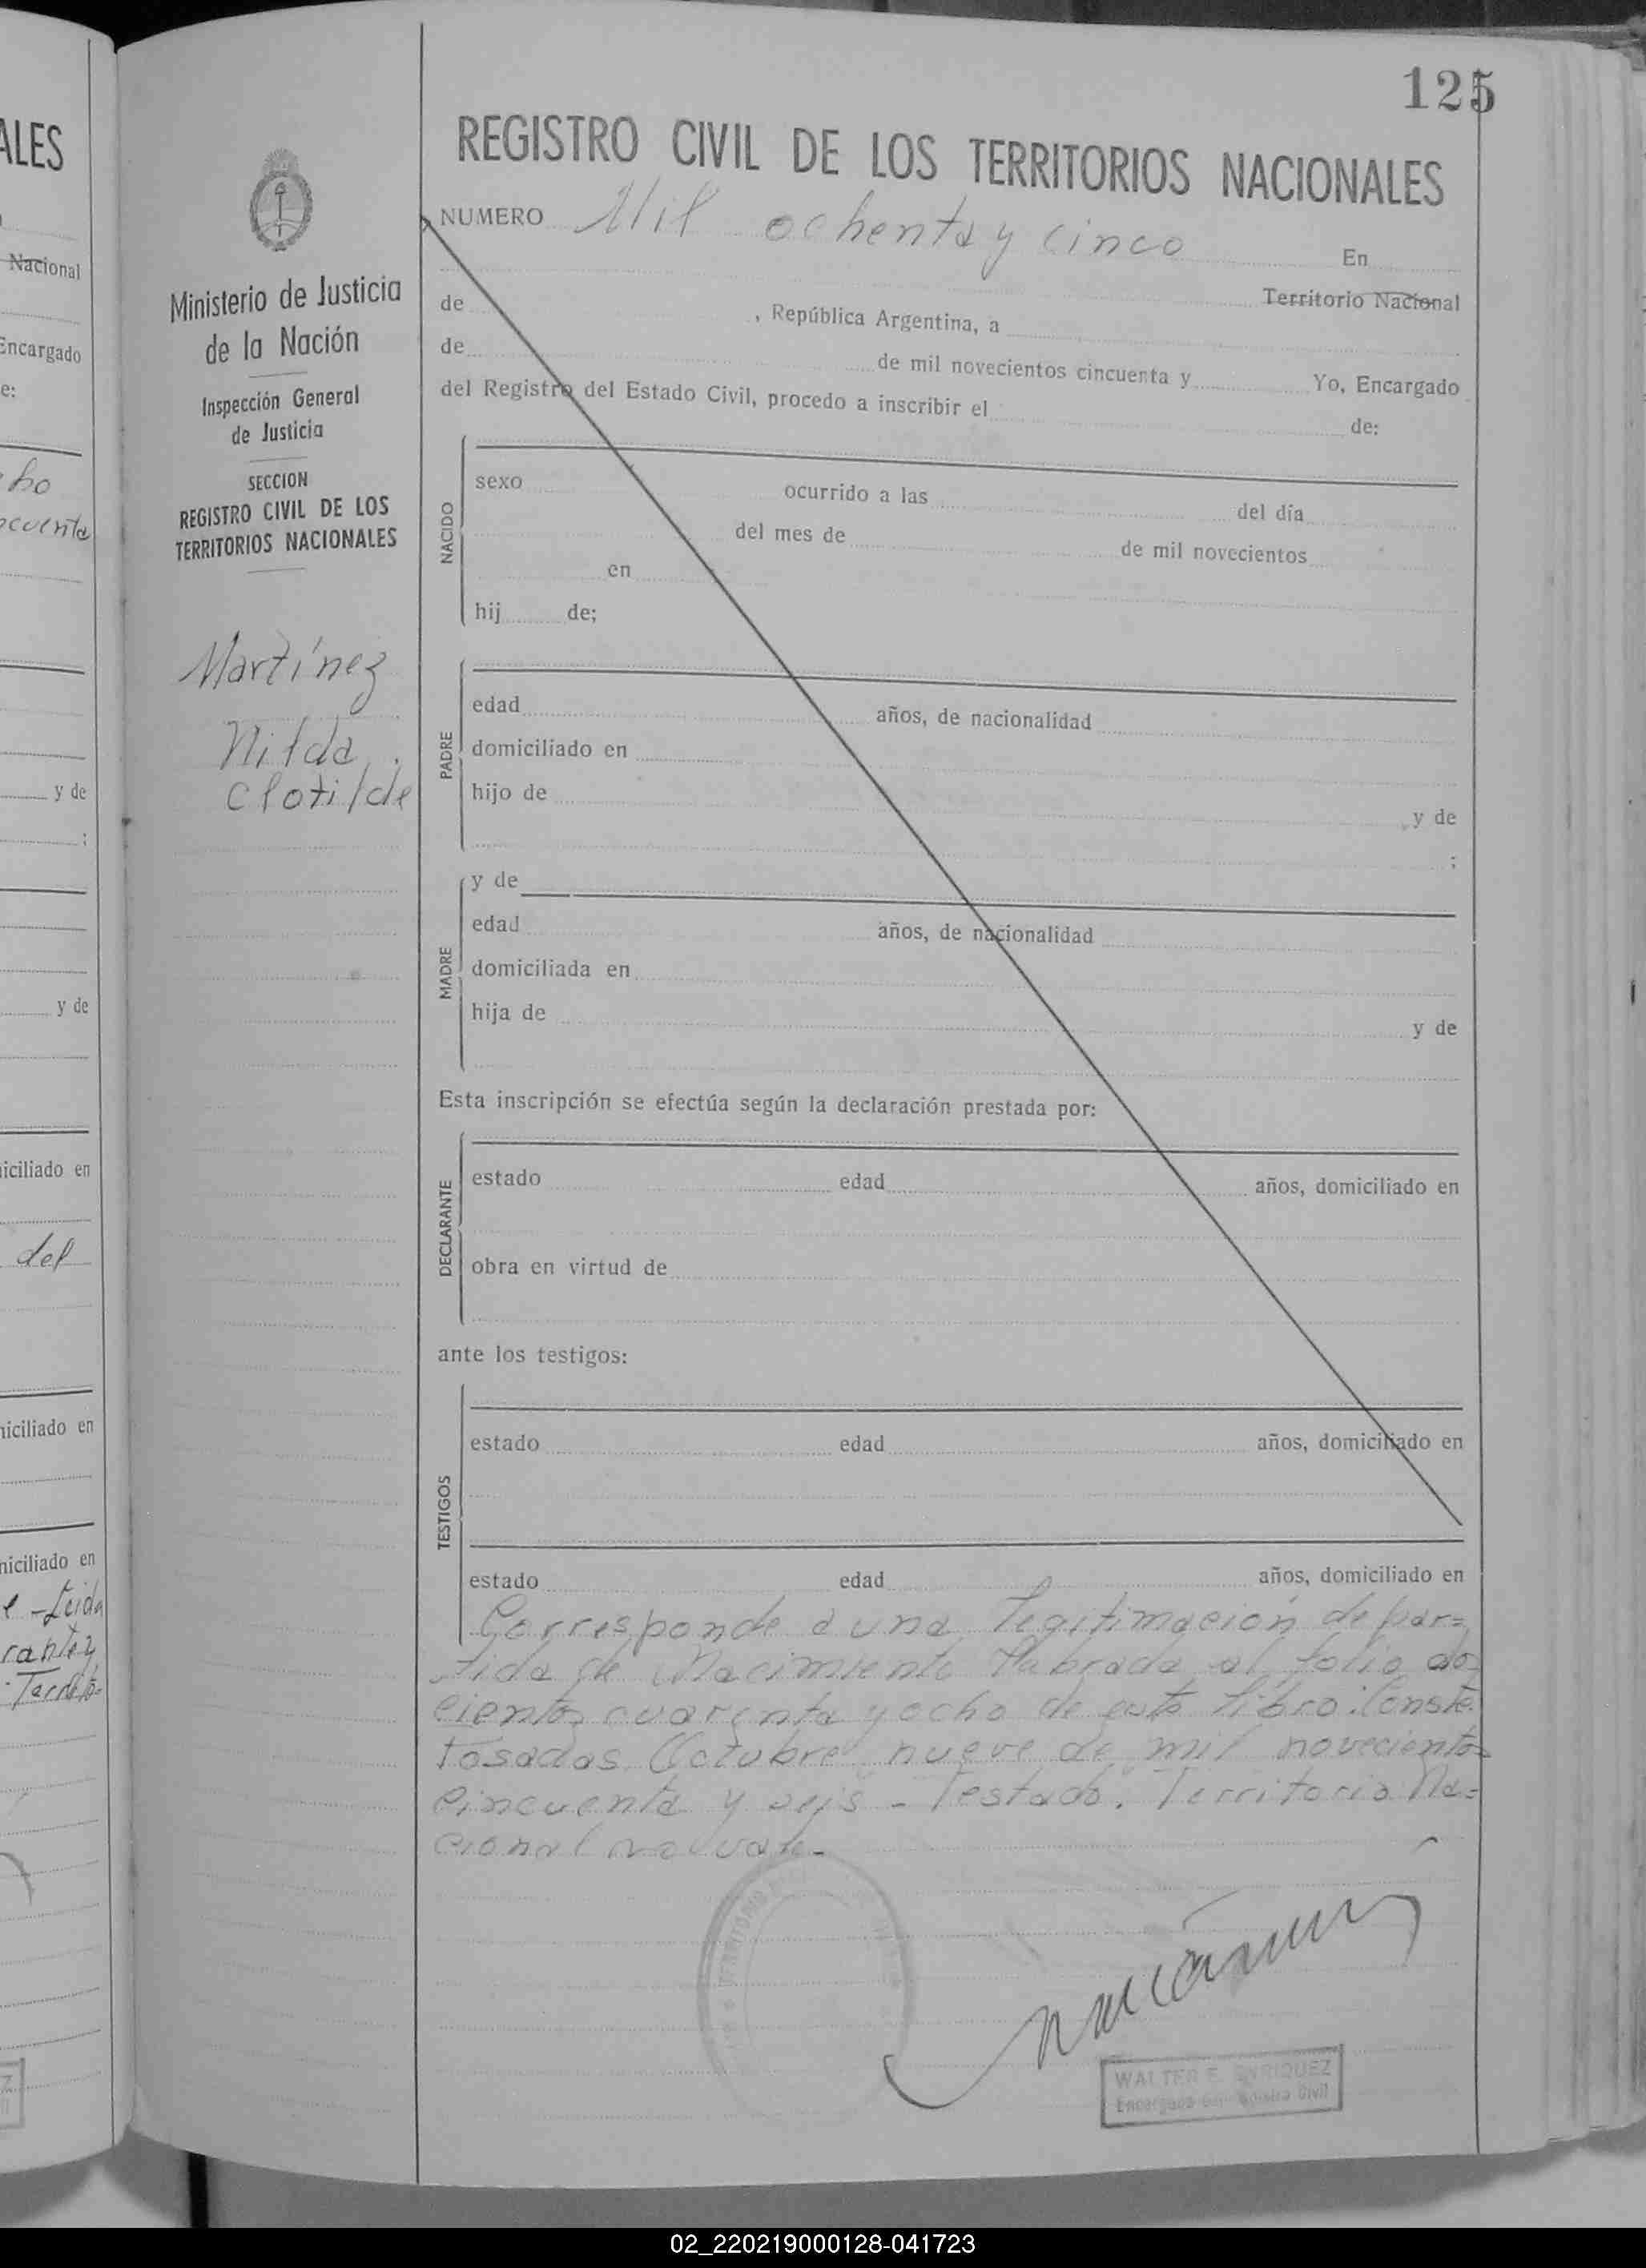 ALES
Nacional
Encargado
e:
cho
ncuenta
y de
:
y de
iciliado en
del
niciliado en
niciliado en
e - Leida
Territo=
125
Ministerio de Justicia
de la Nación
Inspección General
de Justicia
SECCION
REGISTRO CIVIL DE LOS
TERRITORIOS NACIONALES
Martínez
Nilda
Clotilde
REGISTRO CIVIL DE LOS TERRITORIOS NACIONALES
NUMERO Mil ochenta y cinco
En
de Territorio Nacional
, República Argentina, a
de de mil novecientos cincuenta y Yo, Encargado
del Registro del Estado Civil, procedo a inscribir el de:
NACIDO
sexo ocurrido a las del día
del mes de de mil novecientos
en
hij de;
PADRE
edad años, de nacionalidad
domiciliado en
hijo de y de
:
MADRE
y de
edad años, de nacionalidad
domiciliada en
hija de y de
Esta inscripción se efectúa según la declaración prestada por:
DECLARANTE
estado edad años, domiciliado en
obra en virtud de
ante los testigos:
TESTIGOS
estado edad años, domiciliado en
estado edad años, domiciliado en
Corresponde a una legitimación de par=
tida de Nacimiento labrada al folio dos
cientos cuarenta y ocho de este libro. Conste.
Posadas Octubre nueve de mil novecientos
cincuenta y seis - Testado: Territorio Na=
cional no vale.-
TERRITORIO
WALTER E. ENRIQUEZ
Encargado del Registro Civil
02_220219000128-041723